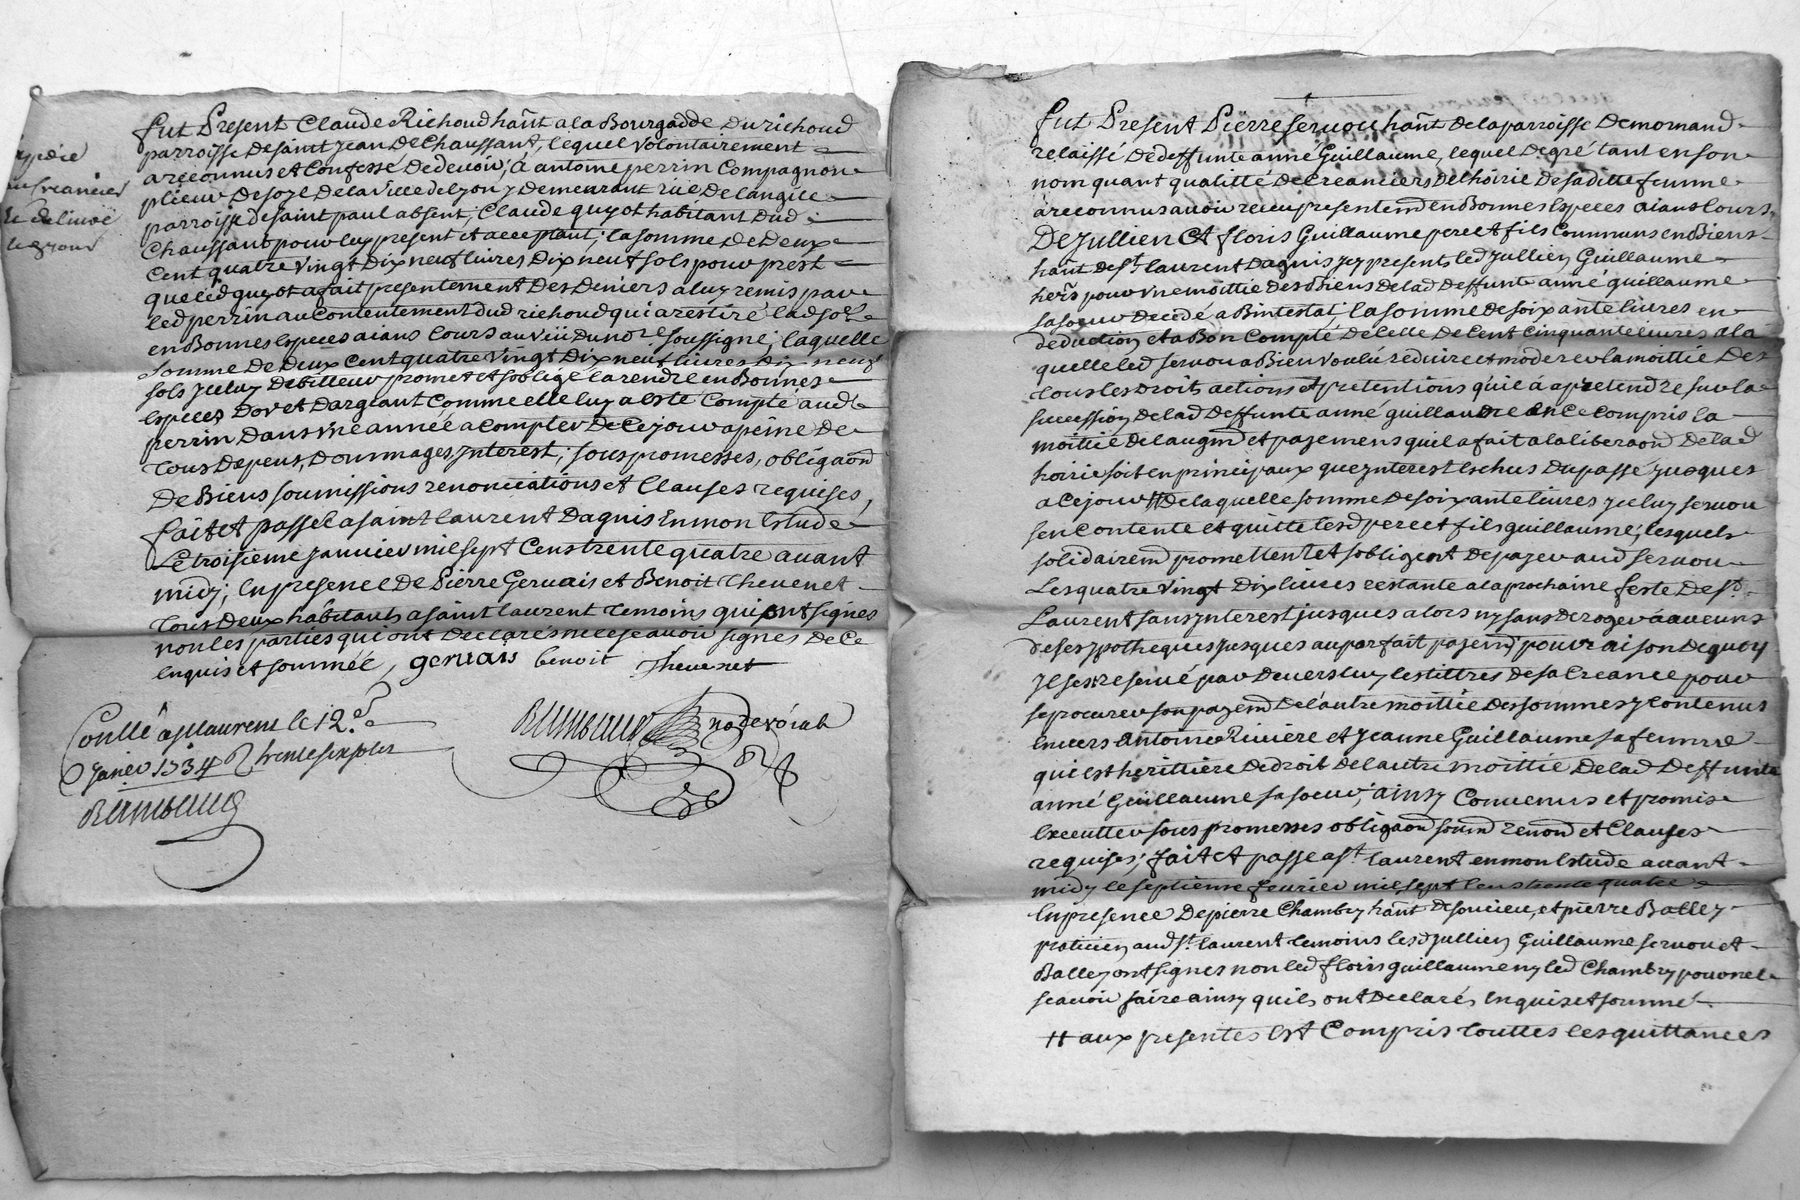 fut Present Claude Richoud hant a la Bourgadde du richoud
parroisse de saint Jean de Chaussant, lequel volontairement
a reconnus et Confessé de devoir, à antoine perrin Compagnon
plieur de soye de la ville de lyon y demeurant rue de langile
parroisse de saint paul absent, Claude guyot habitant dud
Chaussant pour luy present et acceptant; la somme de deux
Cent quatre vingt dix neuf livres dix neuf sols pour prest
que led guyot a fait presentement des deniers a luy remis par
led perrin au Contentement dud richoud qui a restiré lad so.e
en Bonnes especes aians Cours au vü du no.re soussigné; laquelle
somme de deux Cent quatre vingt dix neuf livres dix neuf
sols yceluy debitteur promet et soblige la rendre en Bonnes
especes dor et dargeant Comme elle luy a este Compté aud
perrin dans une année a compter de Ce jour a peine de
tous depens, dommages, jnterest; sous promesses, obligaond
de Biens soumissions renonciations et Clauses requises,
fait et passé a saint laurent dagnis En mon Estude
Le troisieme janvier mil sept Cens trente quatre avant
midy, En presence de Pierre Gervais et Benoit thevenet
tous deux habitants a saint laurent temoins qui ont signés
non les parties qui ont declarés ne le scavoir signés de Ce
Enquis et sommée, gervais benoit Thevenet
expedié
au Creancier
Conllé a st laurens le 12.e
janier 1734 R trente six sols
no.re roial
fut Present Pierre servou hant de la parroisse de mornand
relaissé de deffunte anne Guillaume, lequel de gré tant en son
nom quant qualitté de Creanciers de lhoirie de sa ditte femme
a reconnus avoir receu presentemd en Bonnes Especes aians Cours
De Jullien et floris Guillaume pere et fils Communs en Biens
hant de st laurent dagnis jcy presents led Jullien Guillaume
hers pour une moittie des Biens de lad deffunte anné guillaume
sa soeur decede abintestat, la somme de soixante livres en
deduction et a Bon Compté de Celle de Cent Cinquante livres a la
quelle led servou a Bien voulu reduire et moderer la moittie des
tous les droits actions et pretentions quil a a pretendre sur la
succession de lad deffunte anné guillaume en Ce Compris la
moittié de laugmd et pajemens quil a fait a la liberaond de lad
hoirie soit en principaux que jnterest Eschus du passé jusques
a Ce jour # de laquelle somme de soixante livres yceluy servou
sen Contente et quitte lesd pere et fils guillaume, lesquels
solidairemd promettent et sobligent de payer aud servou
Les quatre vingt dix livres restante a la prochaine feste de st
Laurent sans jnterest jusques alors ny sans deroger à aucuns
de ses ypotheques jusques au parfait pajemd pour raison de quoy
Jl sest reservé par devers luy les tittres de sa Creance pour
se procurer son pajemd de lautre moittie des sommes y Contenus
Envers Antoine Riviere et Jeanne Guillaume sa femme
qui est herittiere de droit de lautre moittie de lad deffunte
anné Guillaume sa soeur; ainsy Convenus et promis
Executter sous promesses obligaond soumd renond et Clauses
requises; fait et passe a st laurent en mon Estude avant
midy le septieme fevrier mil sept Cens trente quatre
En presence de pierre Chambry hant de soucieu, et pierre Balley
praticien aud st laurent temoins lesd Jullien Guillaume servou et
Balley ont signes non led floris guillaume ny led Chambry pour ne le
scavoir faire ainsy quils ont declarés Enquis et sommé
# aux presentes est Compris touttes les quittances